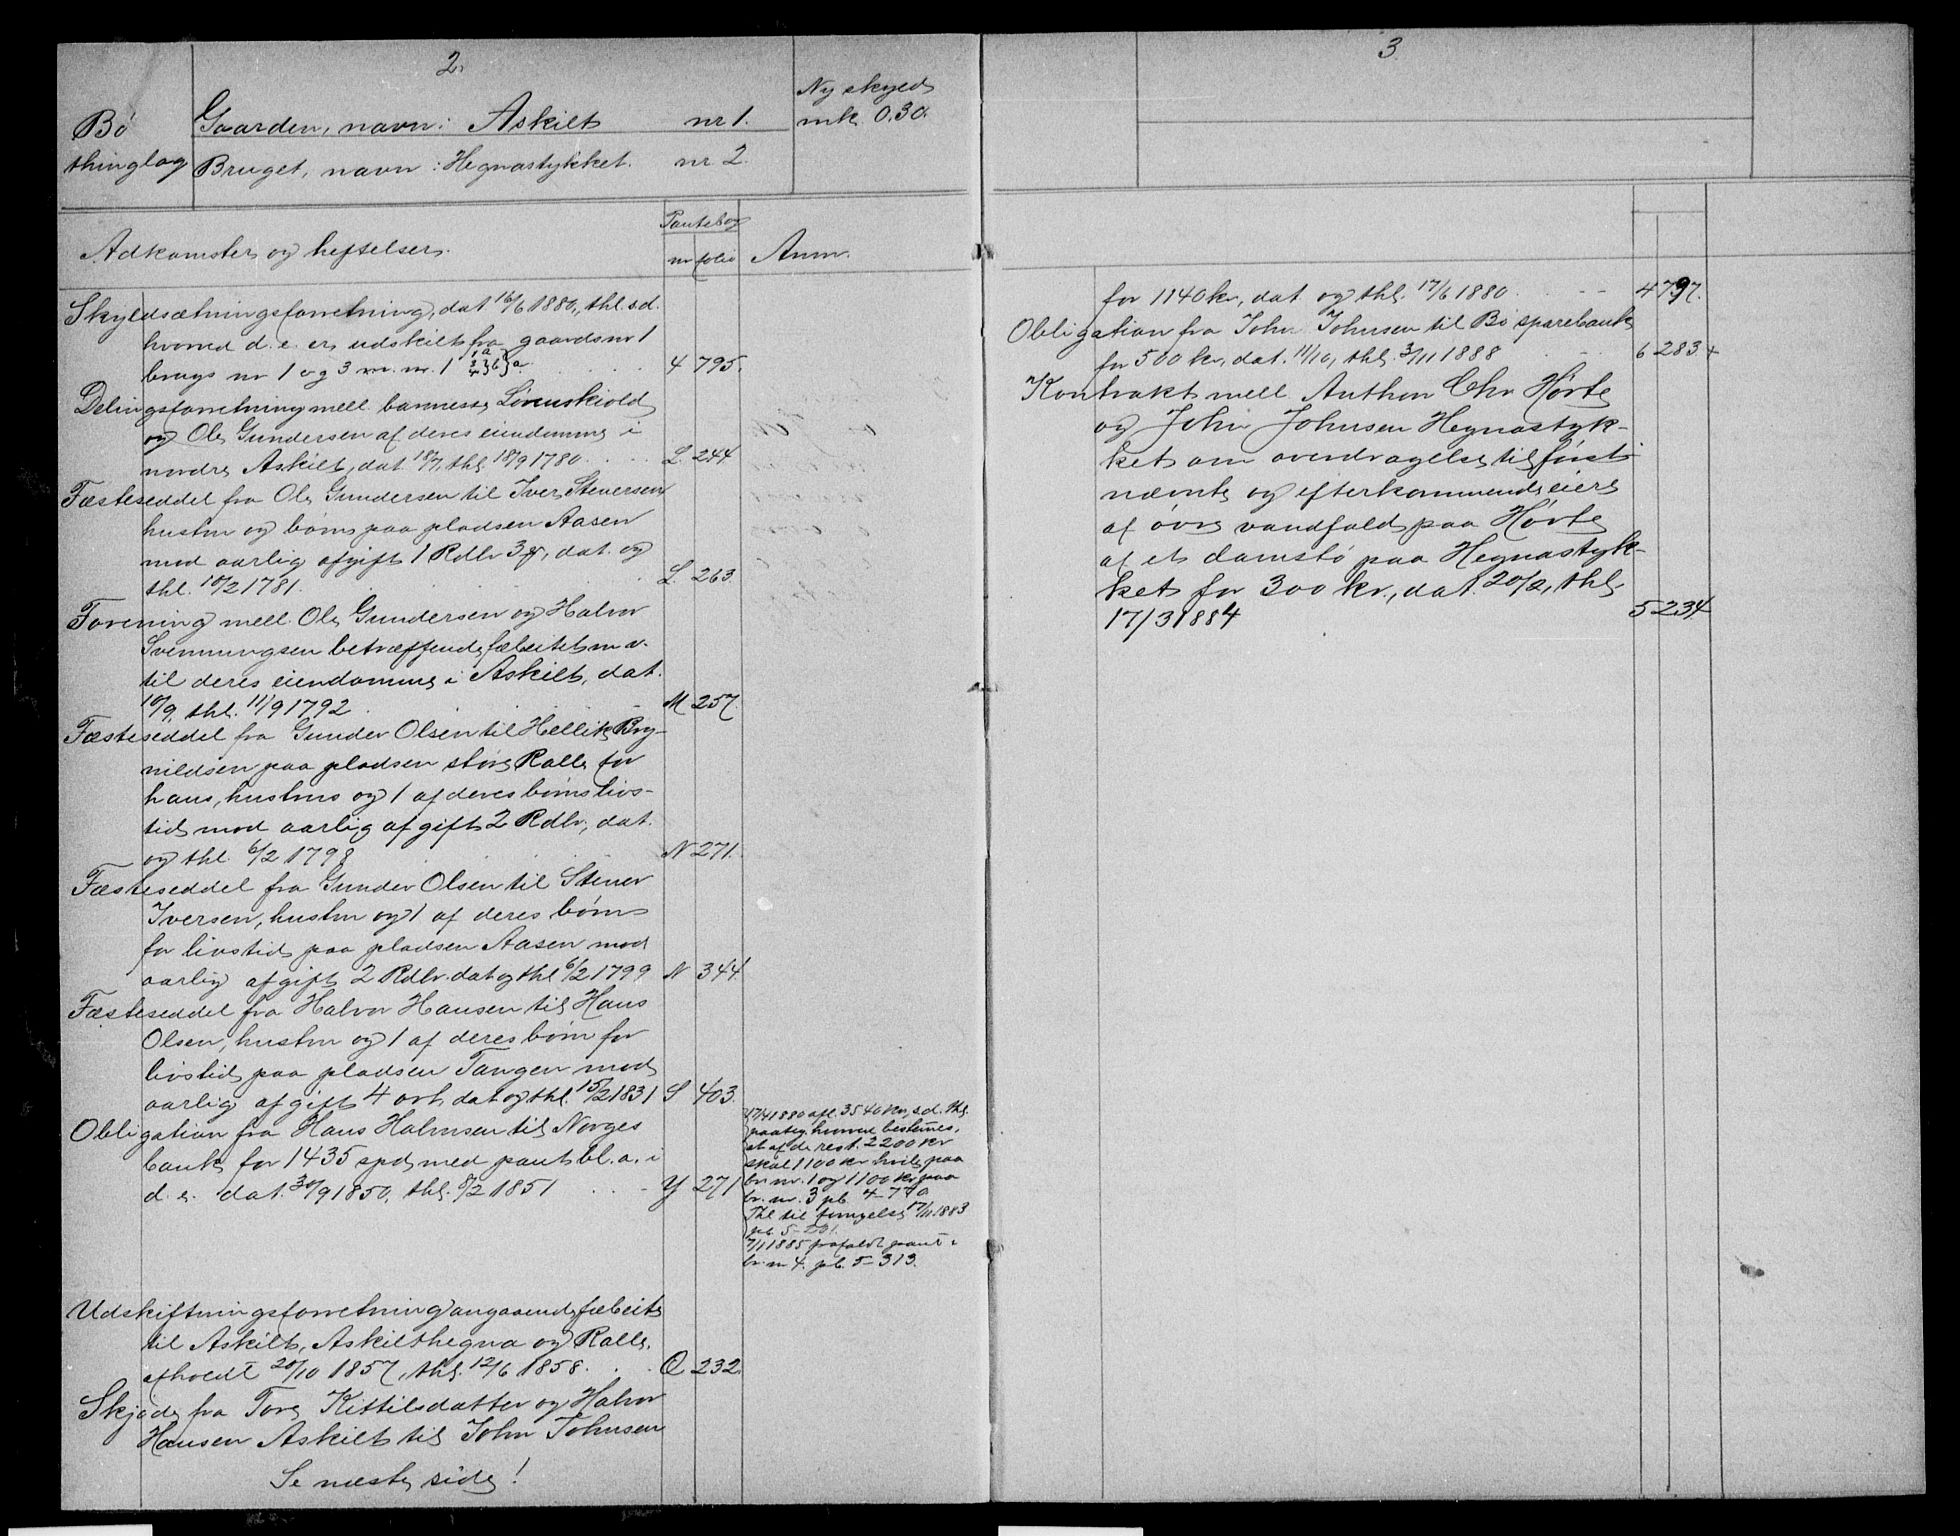 2.
Bø
thinglag
Gaarden, navn: Askilt nr 1.
Bruget, navn: Hegnastykket. nr 2.
Ny skyld
mk. 0.30.
Adkomster og heftelser.
Pantebog
nr folio
Anm.
Skyldsætningsforretning, dat. 16/6 1880, thl. s.d.
hvorved d.e. er udskilt fra gaardsnr 1
brugs nr 1 og 3 4 795.
Delingsforretning mell. barnesse Løvenskiold
og Ole Gundersen af deres eiendomme i
nordre Askilt, dat. 18/7, thl. 18/9 1780. L. 244
Fæsteseddel fra Ole Gundersen til Iver Stenersen
hustru og børn paa pladsen Aasen
mod aarlig afgift 1 Rdlr 3 , dat. og
thl. 10/2 1781. L. 263.
Forening mell. Ole Gundersen og Halvor
Svennungsen betræffende fæbeitet m.v.
til deres eiendomme i Askilt, dat.
10/9, thl. 11/9 1792. M 257.
Fæsteseddel fra Gunder Olsen til Hellik Bry-
nildsen paa pladsen store Ralle for
hans, hustrus og 1 af deres børns livs-
tid mod aarlig afgift 2 Rdlr., dat.
og thl. 6/2 1798 N 271.
Fæsteseddel fra Gunder Olsen til Stener
Iversen, hustru og 1 af deres børn
for livstid paa pladsen Aasen mod
aarlig afgift 2 Rdlr. dat og thl. 6/2 1799 N 344
Fæsteseddel fra Halvor Hansen til Hans
Olsen, hustru og 1 af deres børn for
livstid paa pladsen Tangen mod
aarlig afgift 4 ort, dat og thl. 15/2 1831 S 403.
Obligation fra Hans Halvorsen til Norges
bank for 1435 spd. med pant bl. a. i
d. e. dat. 30/9 1850, thl. 8/2 1851 Y 271
17/4 1880 afl. 3540 kr, s.d. thl.
paateg. hvorved bestemes,
at af de rest. 2200 kr
skal 1100 kr hvile paa
br. nr. 1 og 1100 kr paa
br. nr. 3 pb. 4-770
Thl. til fornyelse 17/11 1883
pb. 5-201.
7/11 1885 frafaldt pant i
br. nr 4. pb. 5-313.
Udskiftningsforretning angaaende fæbeite
til Askilt, Askilthegna og Ralle.
afholdt 20/10 1857, thl. 12/6 1858. Q 232.
Skjøde fra Tore Kittilsdatter og Halvor
Hansen Askilt til John Johnsen
Se næste side!
3
for 1140 kr., dat. og thl. 17/6 1880. 4 797.
Obligation fra John Johnsen til Bø sparebank
for 500 kr, dat. 11/10, thl. 3/11 1888 6 283 +
Kontrakt mell. Anthon Chr Hørte
og John Johnsen Hegnastyk-
ket om overdragelse til først-
nævnte og efterkommende eiere
af øvre vandfald paa Hørte
af et damstø paa Hegnastyk-
ket for 300 kr., dat. 20/2, thl.
17/3 1884 5 234